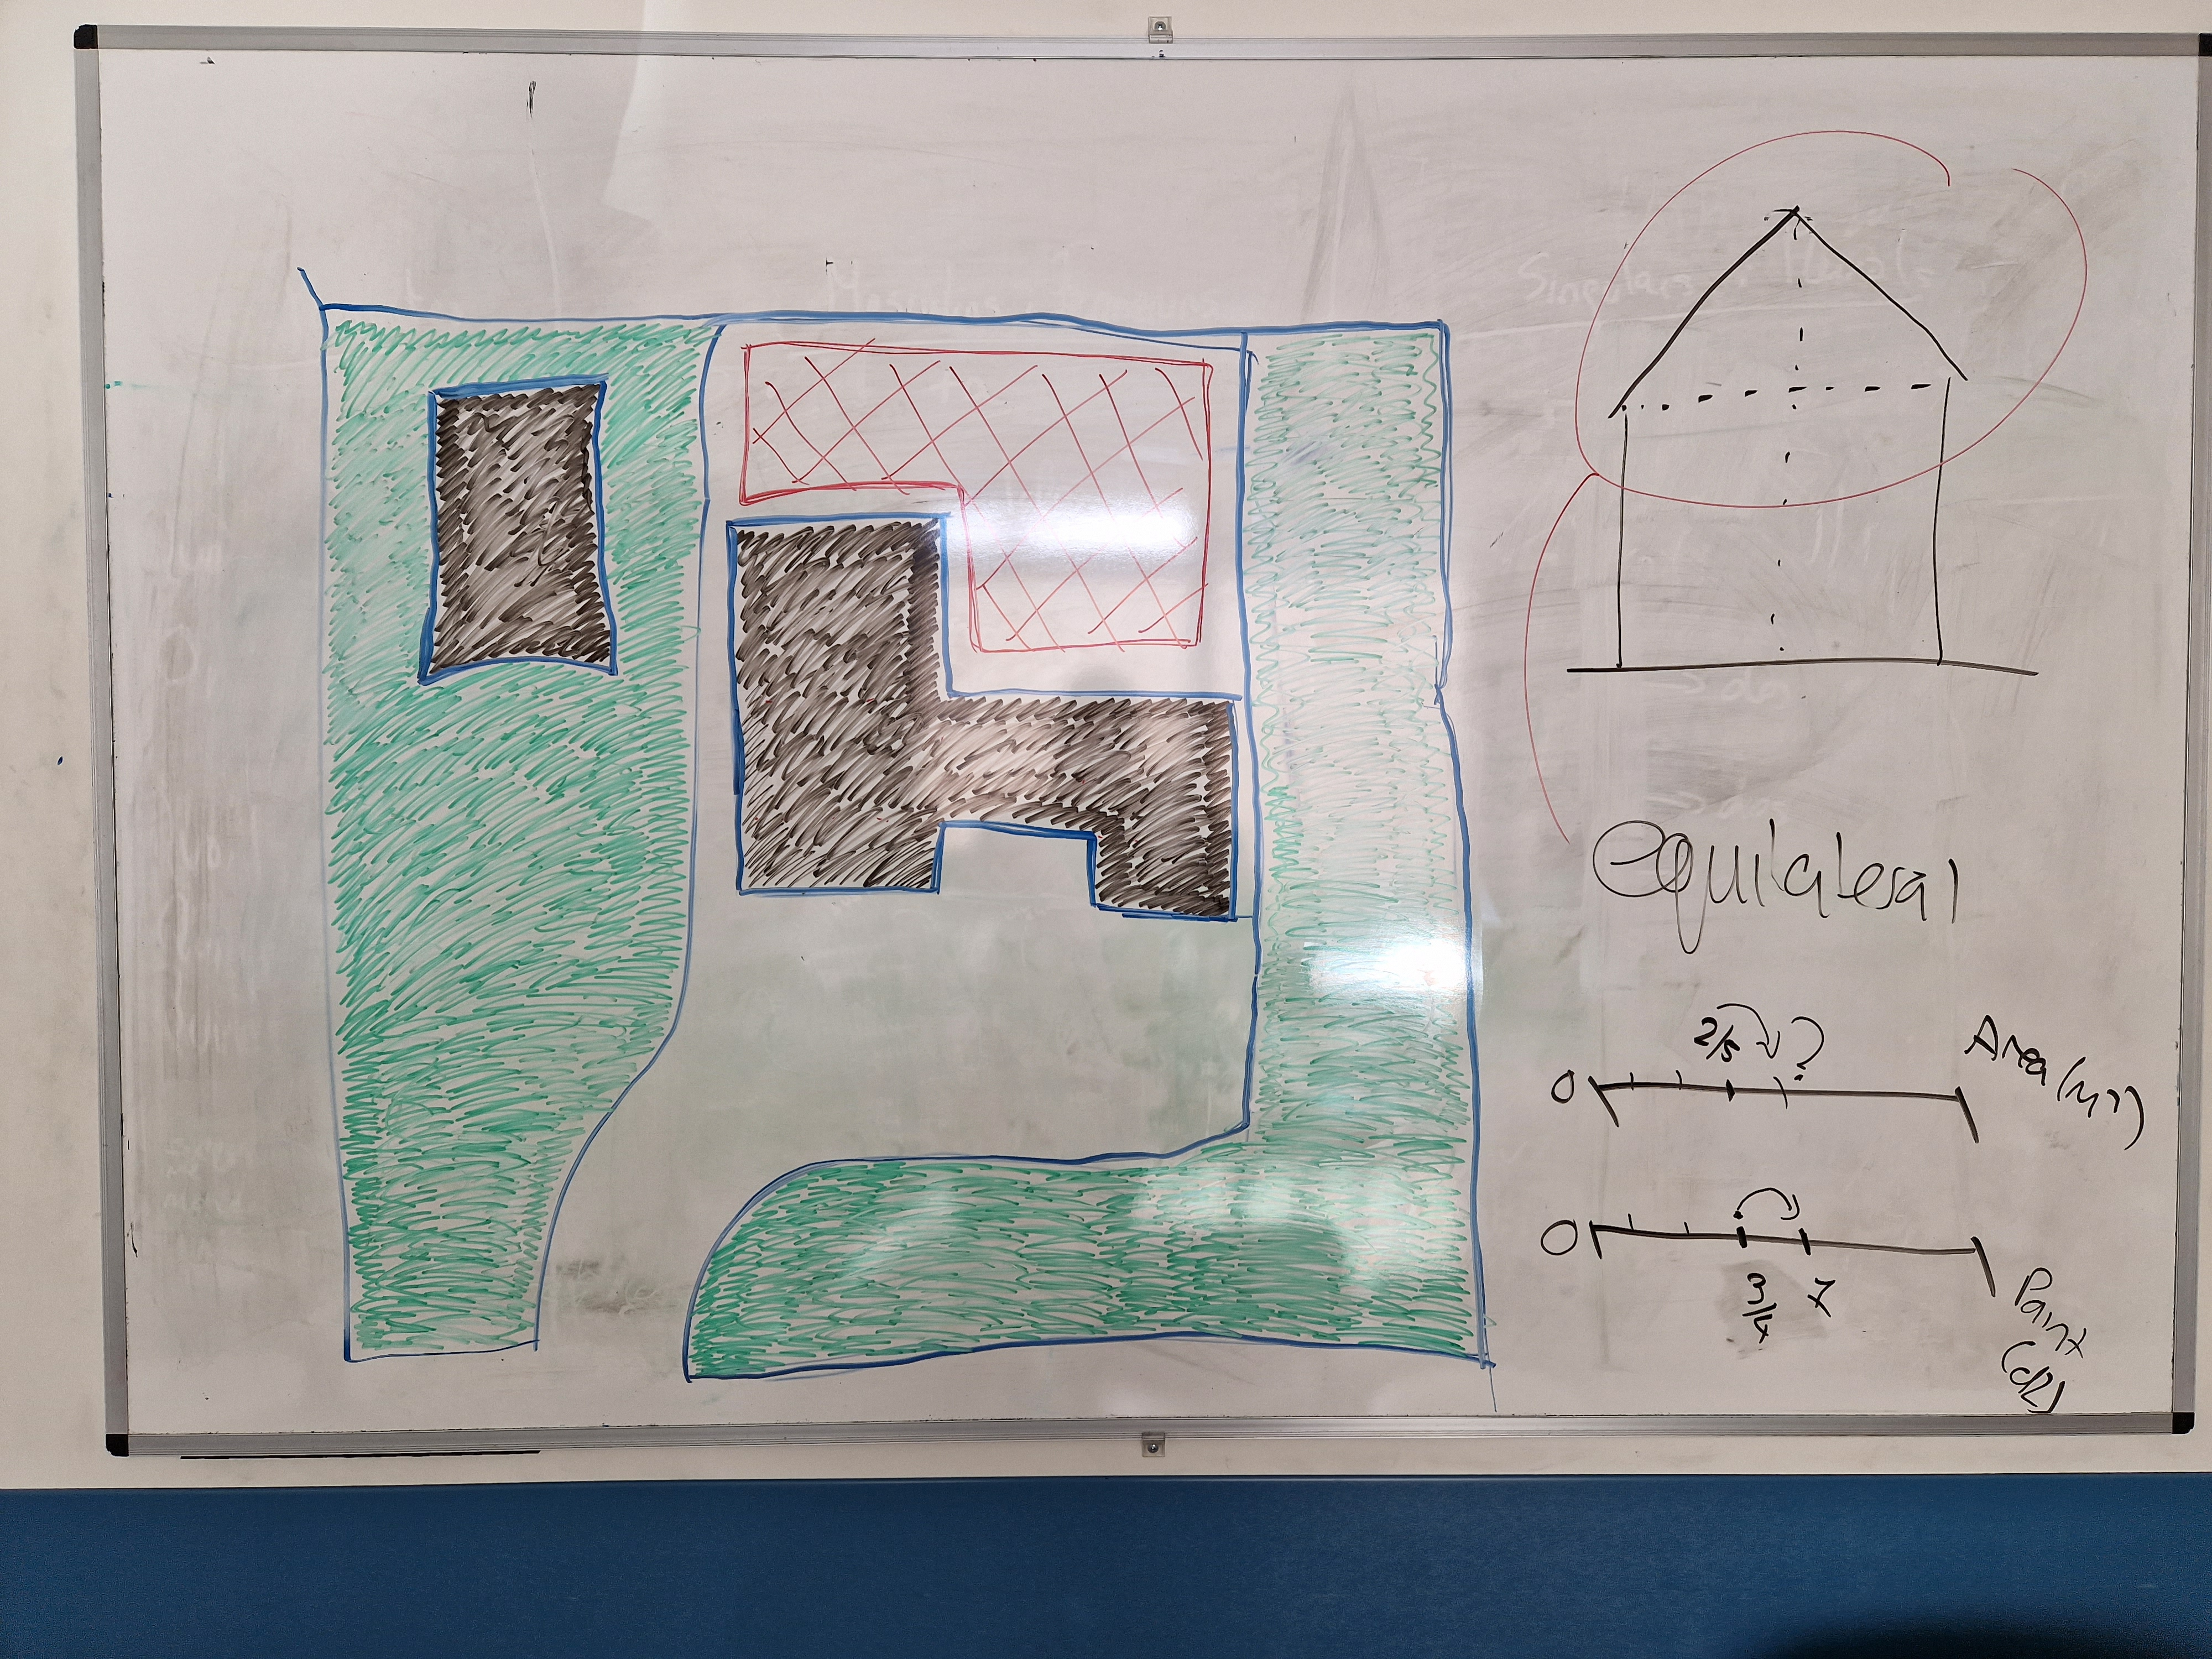 equilateral
2/5 ?
0 Area (m²)
0
3/4 1
Paint
(dl)